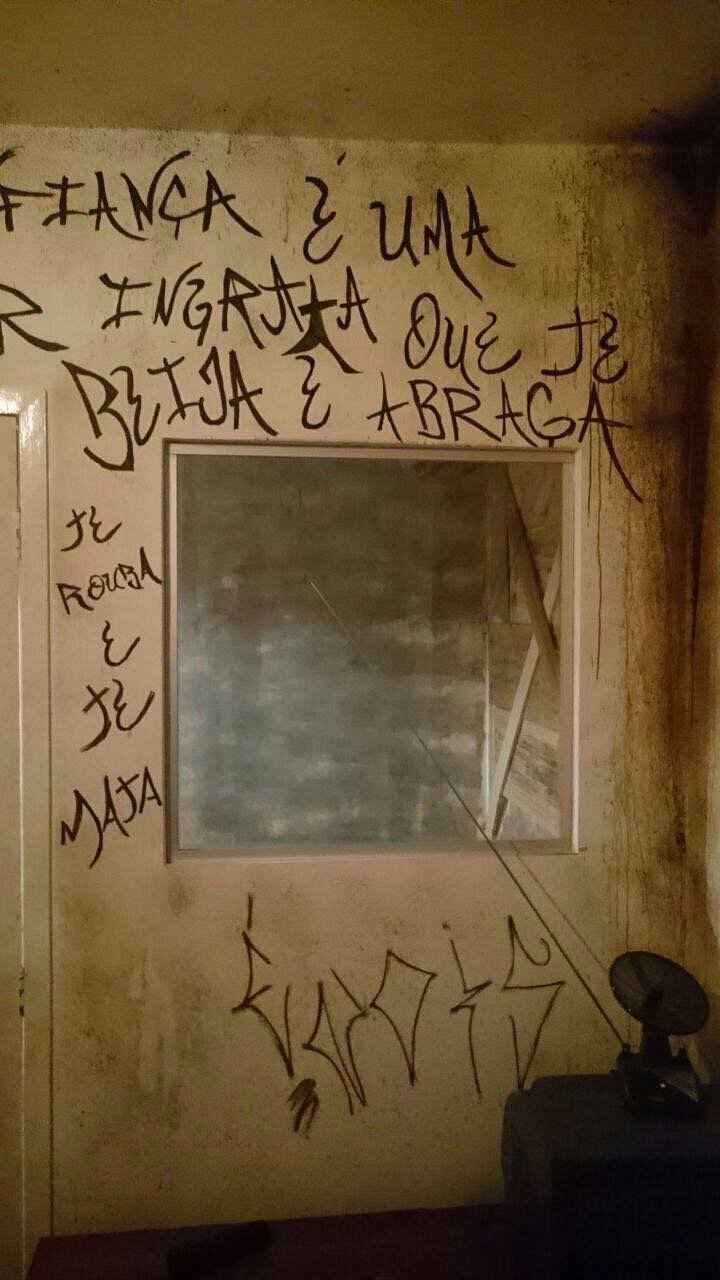 FIANÇA É UMA
R INGRATA QUE TE
BEIJA E ABRAÇA
TE
ROUBA
E
TE
MATA
É NOIS